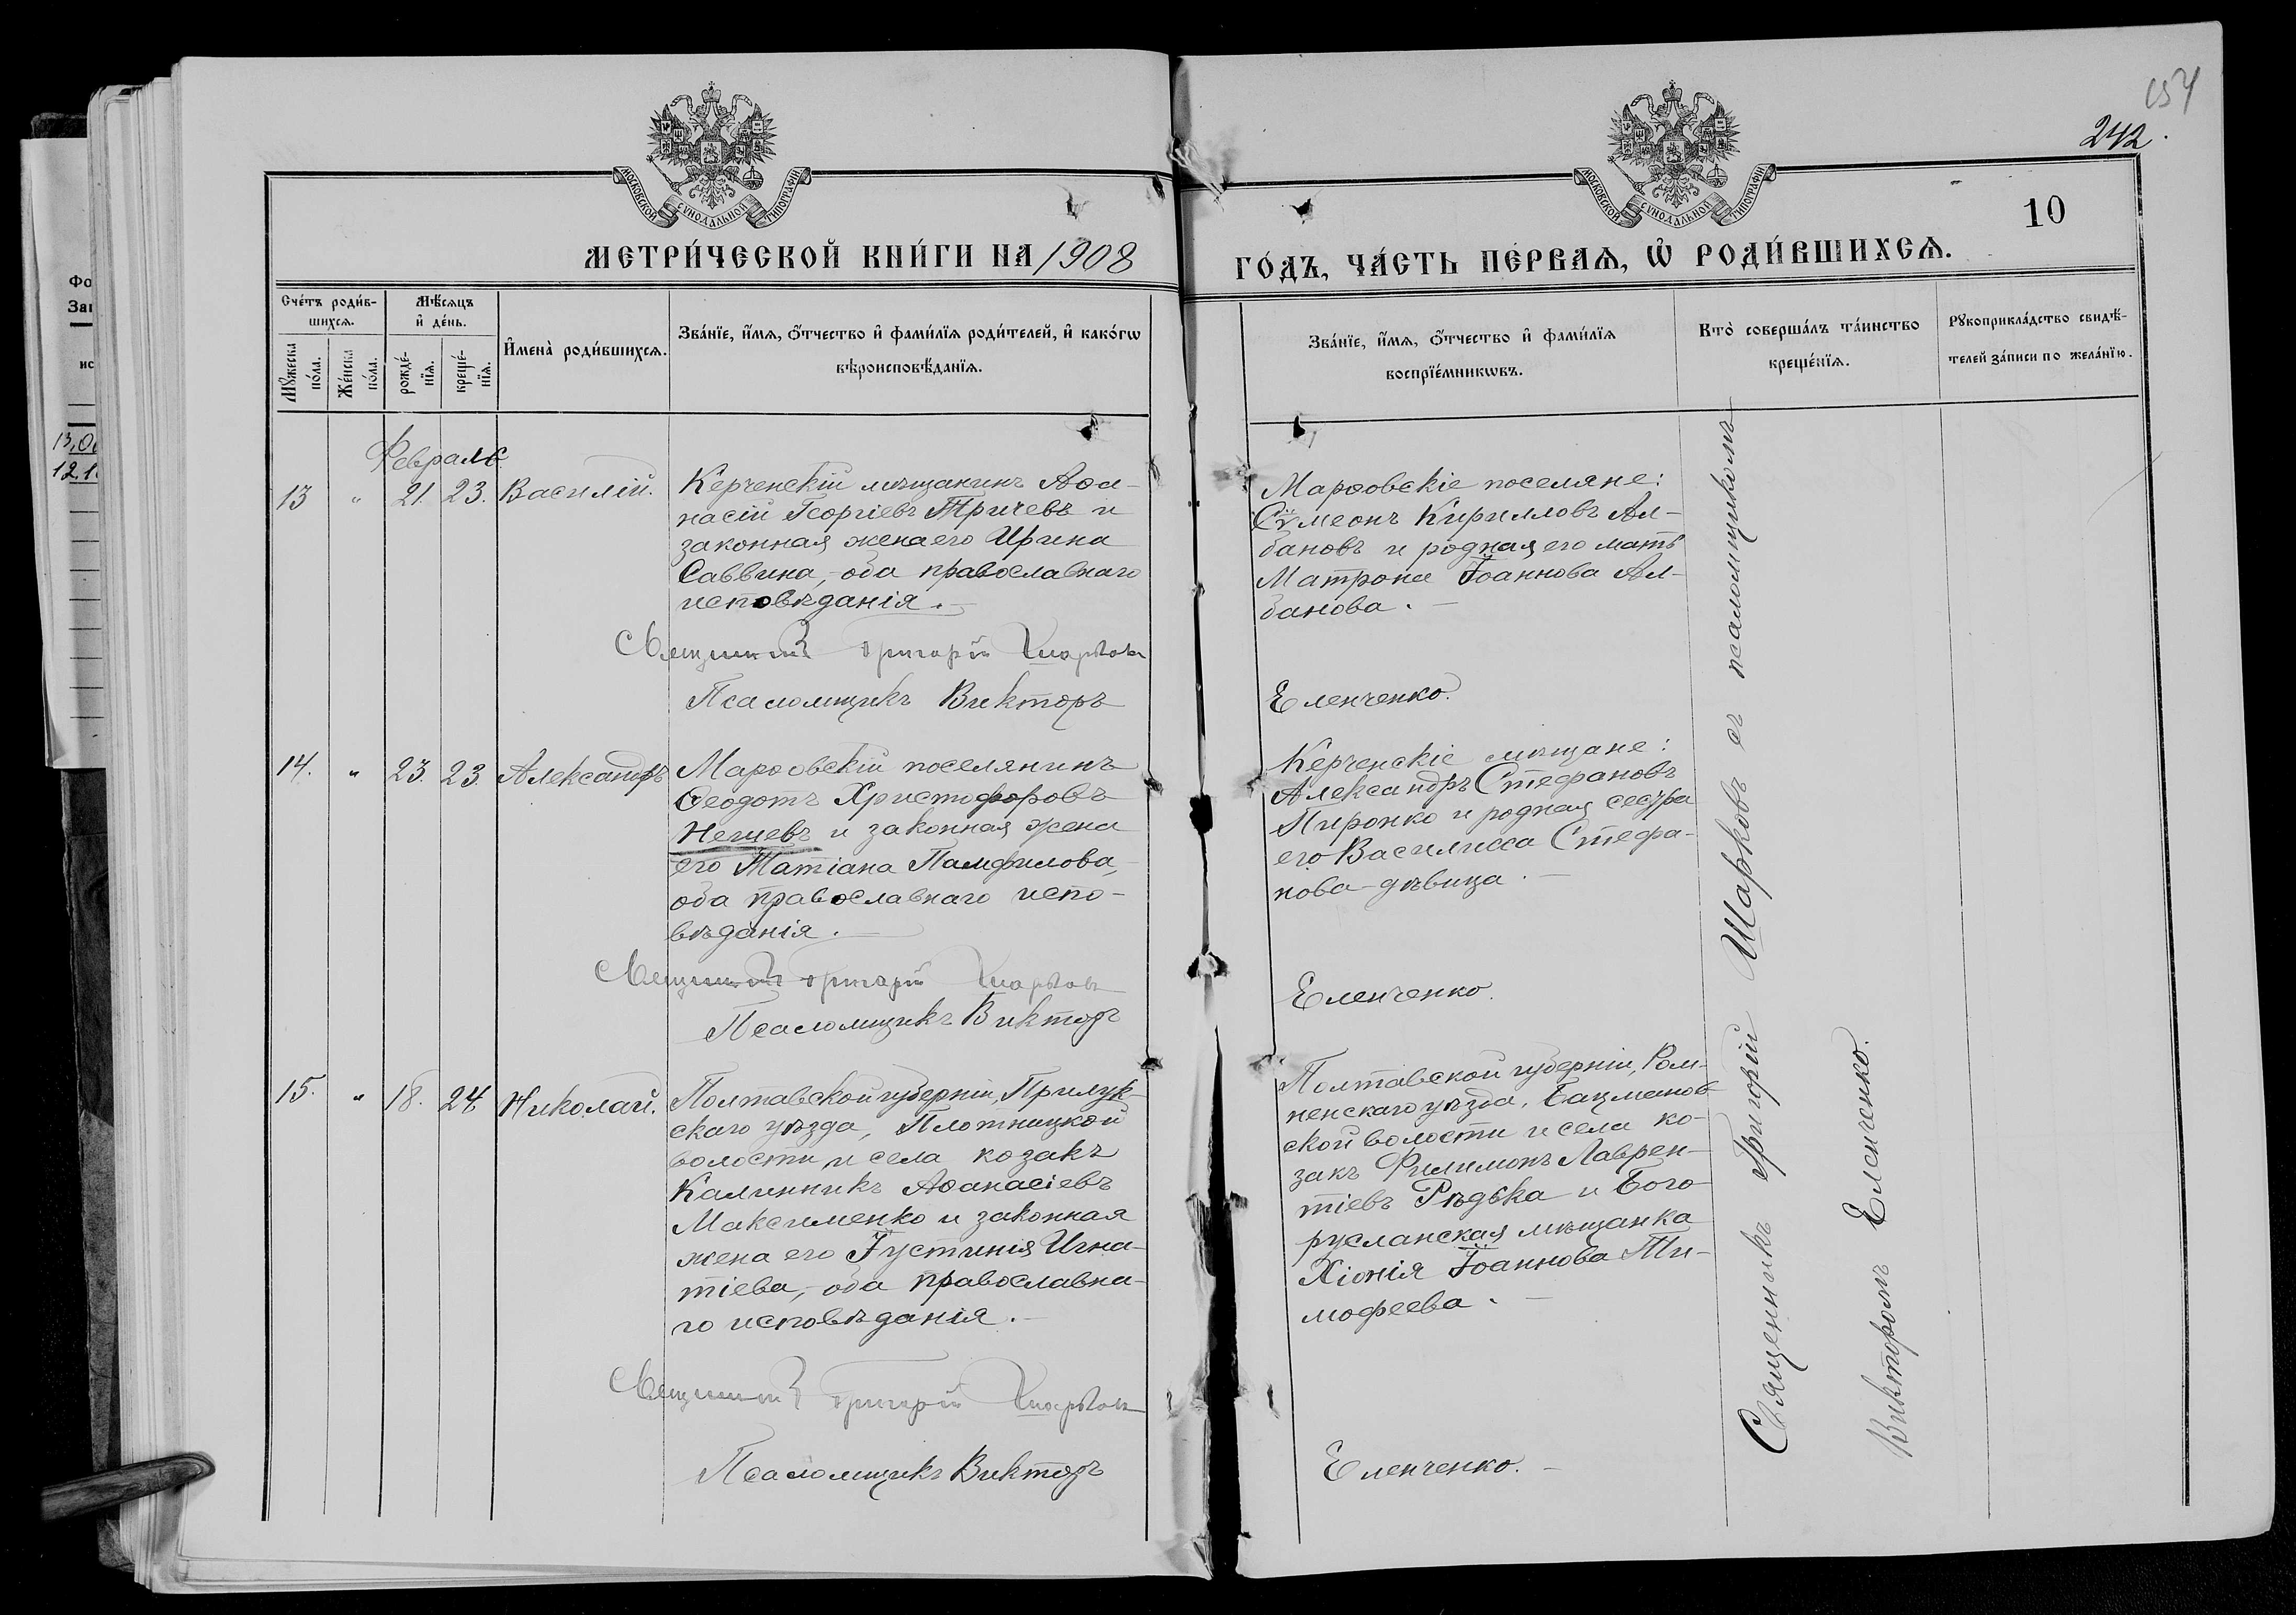 154
242.
МОСКОВСКОЙ СУНОДАЛЬНОЙ ТИПОГРАФІИ
МОСКОВСКОЙ СУНОДАЛЬНОЙ ТИПОГРАФІИ
10
МЕТРИ́ЧЕСКОЙ КНИ́ГИ НА 1908
ГО́ДЪ, ЧА́СТЬ ПЕ́РВАѦ, Ѡ҆ РОДИ́ВШИХСѦ.
Сче́тъ роди́в-
шихсѧ.
Мѣ́сѧцъ
и҆ де́нь.
Мꙋ́жеска
по́ла.
Же́нска
по́ла.
рожде́-
нїѧ.
креще́-
нїѧ.
И҆мена̀ роди́вшихсѧ.
Зва́нїе, и҆́мѧ, ѻ҆́тчество и҆ фами́лїѧ роди́телей, и҆ како́гѡ
вѣроисповѣ́данїѧ.
Зва́нїе, и҆́мѧ, ѻ҆́тчество и҆ фами́лїѧ
воспрїе́мникѡвъ.
Кто̀ соверша́лъ та́инство
креще́нїѧ.
Рꙋкоприкла́дство свидѣ́-
телей за́писи по жела́нїю.
Февраль.
13 " 21. 23. Василій.
Керченскій мѣщанинъ Аѳа-
насій Георгіевъ Тричевъ и
законная жена его Ирина
Саввина, - оба православнаго
исповѣданія. -
Священникъ Григорій Шарковъ
Псаломщикъ Викторъ
Марѳовскіе поселяне:
Сѵмеонъ Кирилловъ Ал-
бановъ и родная его мать
Матрона Іоаннова Ал-
банова. -
Еленченко.
14. " 23. 23. Александръ
Марѳовскій поселянинъ
Ѳеодотъ Христофоровъ
Нешевъ и законная жена
его Татіана Памфилова,
оба православнаго испо-
вѣданія. -
Священникъ Григорій Шарковъ
Псаломщикъ Викторъ
Керченскіе мѣщане:
Александръ Стефановъ
Пиронко и родная сестра
его Василисса Стефа-
нова - дѣвица. -
Еленченко.
15. " 18. 24 Николай.
Полтавской губерніи, Прилук-
скаго уѣзда, Плотницкой
волости и села козакъ
Калинникъ Аѳанасіевъ
Максименко и законная
жена его Іустинія Игна-
тіева, - оба православна-
го исповѣданія. -
Священникъ Григорій Шарковъ
Псаломщикъ Викторъ
Полтавской губерніи, Ром-
ненскаго уѣзда, Бацманов-
ской волости и села ко-
закъ Филимонъ Лаврен-
тіевъ Рѣдька и Бого-
русланская мѣщанка
Хіонія Іоаннова Ти-
мофеева. -
Еленченко. -
Священникъ Григорій Шарковъ съ псаломщикомъ
Викторомъ Еленченко.
Фо
Заг
ис
13,0
12,1